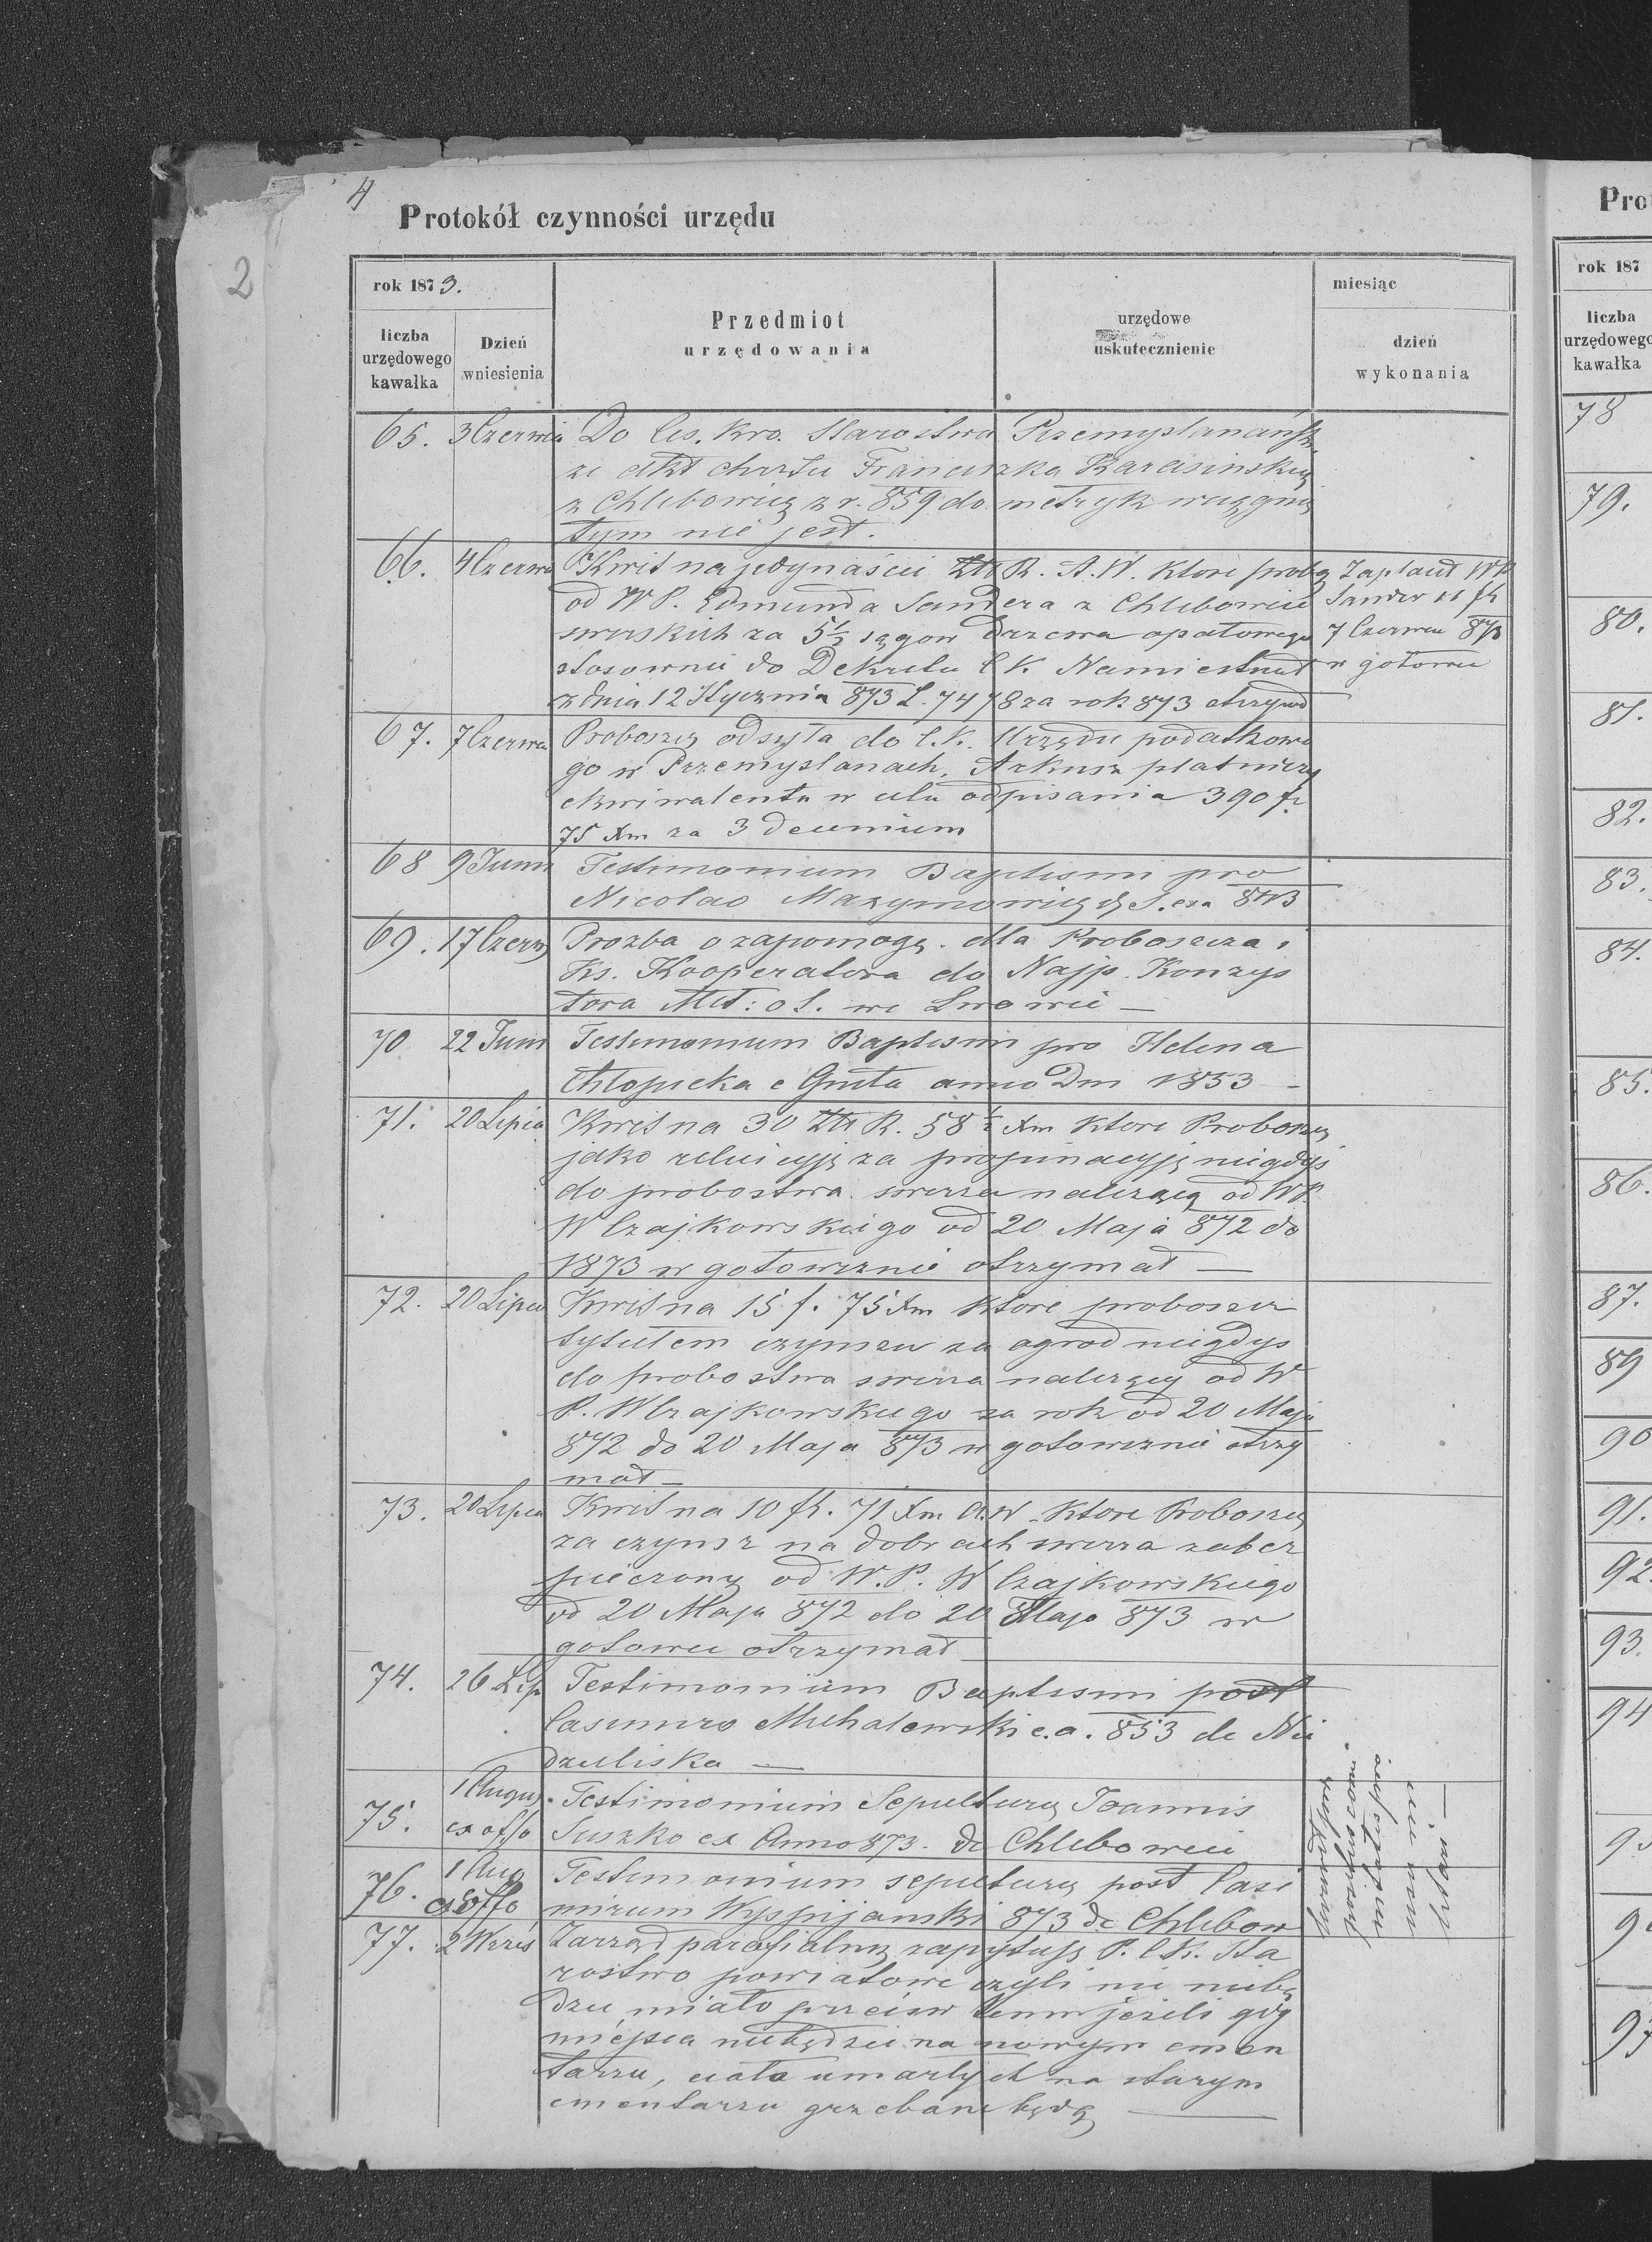 4
Protokół czynności urzędu
2
rok 1873.
liczba urzędowego kawałka
Dzień wniesienia
Przedmiot urzędowania
urzędowe uskutecznienie
miesiąc
dzień wykonania
65. 3 Czerwca Do Ces. Kro. Starostwa Przemyslanańsk.
ze akt chrztu Franciszka Barasinskieg
z Chlebowic z r. 859 do metryk wciągnię
tym nie jest.
66. 4 Czerwca Kwit na jedynaście Złr R. A. W. ktore probo
od WP. Edmunda Sandera z Chlebowic
swirskich za 5½ sągow drzewa opałowego
stosownie do Dekretu C K. Namiestnict
z dnia 12 Stycznia 873 L. 7478 za rok 873 otrzymał
Zapłacił WP
Sander 11 fl
7 Czerwca 873
w gotowce
67. 7 Czerwca Proboszcz odsyła do C. K. Urzędu podatkowe
go w Przemyslanach, Arkusz płatniczy
ekwiwalentu w celu odpisania 390 fr
75 Xm za 3 decenium
68 9 Junii Testimonium Baptismi pro
Nicolao 843
69. 17 Czerw Prozba o zapomogę dla Proboszcza i
Ks. Kooperatora do Najp. Konzys
tora Met: o ł. we Lwowie —
70 22 Junii Testimonium Baptismi pro Helena
Chłopicka e Gniła anno Dni 1853 —
71. 20 Lipca Kwit na 30 Złr R. 58½ Xm ktore Proboszcz
jako relucyję za propinacyję niegdys
do probostwa swirza należącą od WP.
W Czajkowskiego od 20 Maja 872 do
1873 w gotowiznie otrzymał —
72. 20 Lipca Kwit na 15 f. 75 Xm ktore proboszcz
tytułem czynszu za ogrod niegdys
do probostwa swirza należący od W
P. W Czajkowskiego za rok od 20 Maja
872 do 20 Maja 873 w gotowiznie otrzy
mał —
73. 20 Lipca Kwit na 10 fl. 71 Xm A. W. ktore Proboszcz
za czynsz na dobrach swirza zabez
pieczony od W. P. W Czajkowskiego
od 20 Maja 872 do 20 Maja 873 w
gotowce otrzymał
74. 26 Lip Testimonium Baptismi post
Casimiro Michalewski e.a. 853 de Nie
dzieliska —
75. 1 Augus ex offo Testimonium Sepultury Joannis
Suszko ex Anno 873. de Chlebowice
76. 1 Aug ex offo Testimonium sepultury post Casi
mirum Wyspijanski 873 de Chlebow
77. 2 Wrześ Zarząd parafialny zapytuję P. C K. Sta
rostwo powiatowe czyli nie niebę
dzie miało przeciw temu jeżeli gdy
miejsca niebędzie na nowym cmen
tarzu, ciała umarłych na starym
cmentarzu grzebane będą —
Pro
rok 187
liczba urzędowego kawałka
78
79.
80.
81.
82.
83.
84.
85.
86.
87.
89
90
91.
92.
93.
94